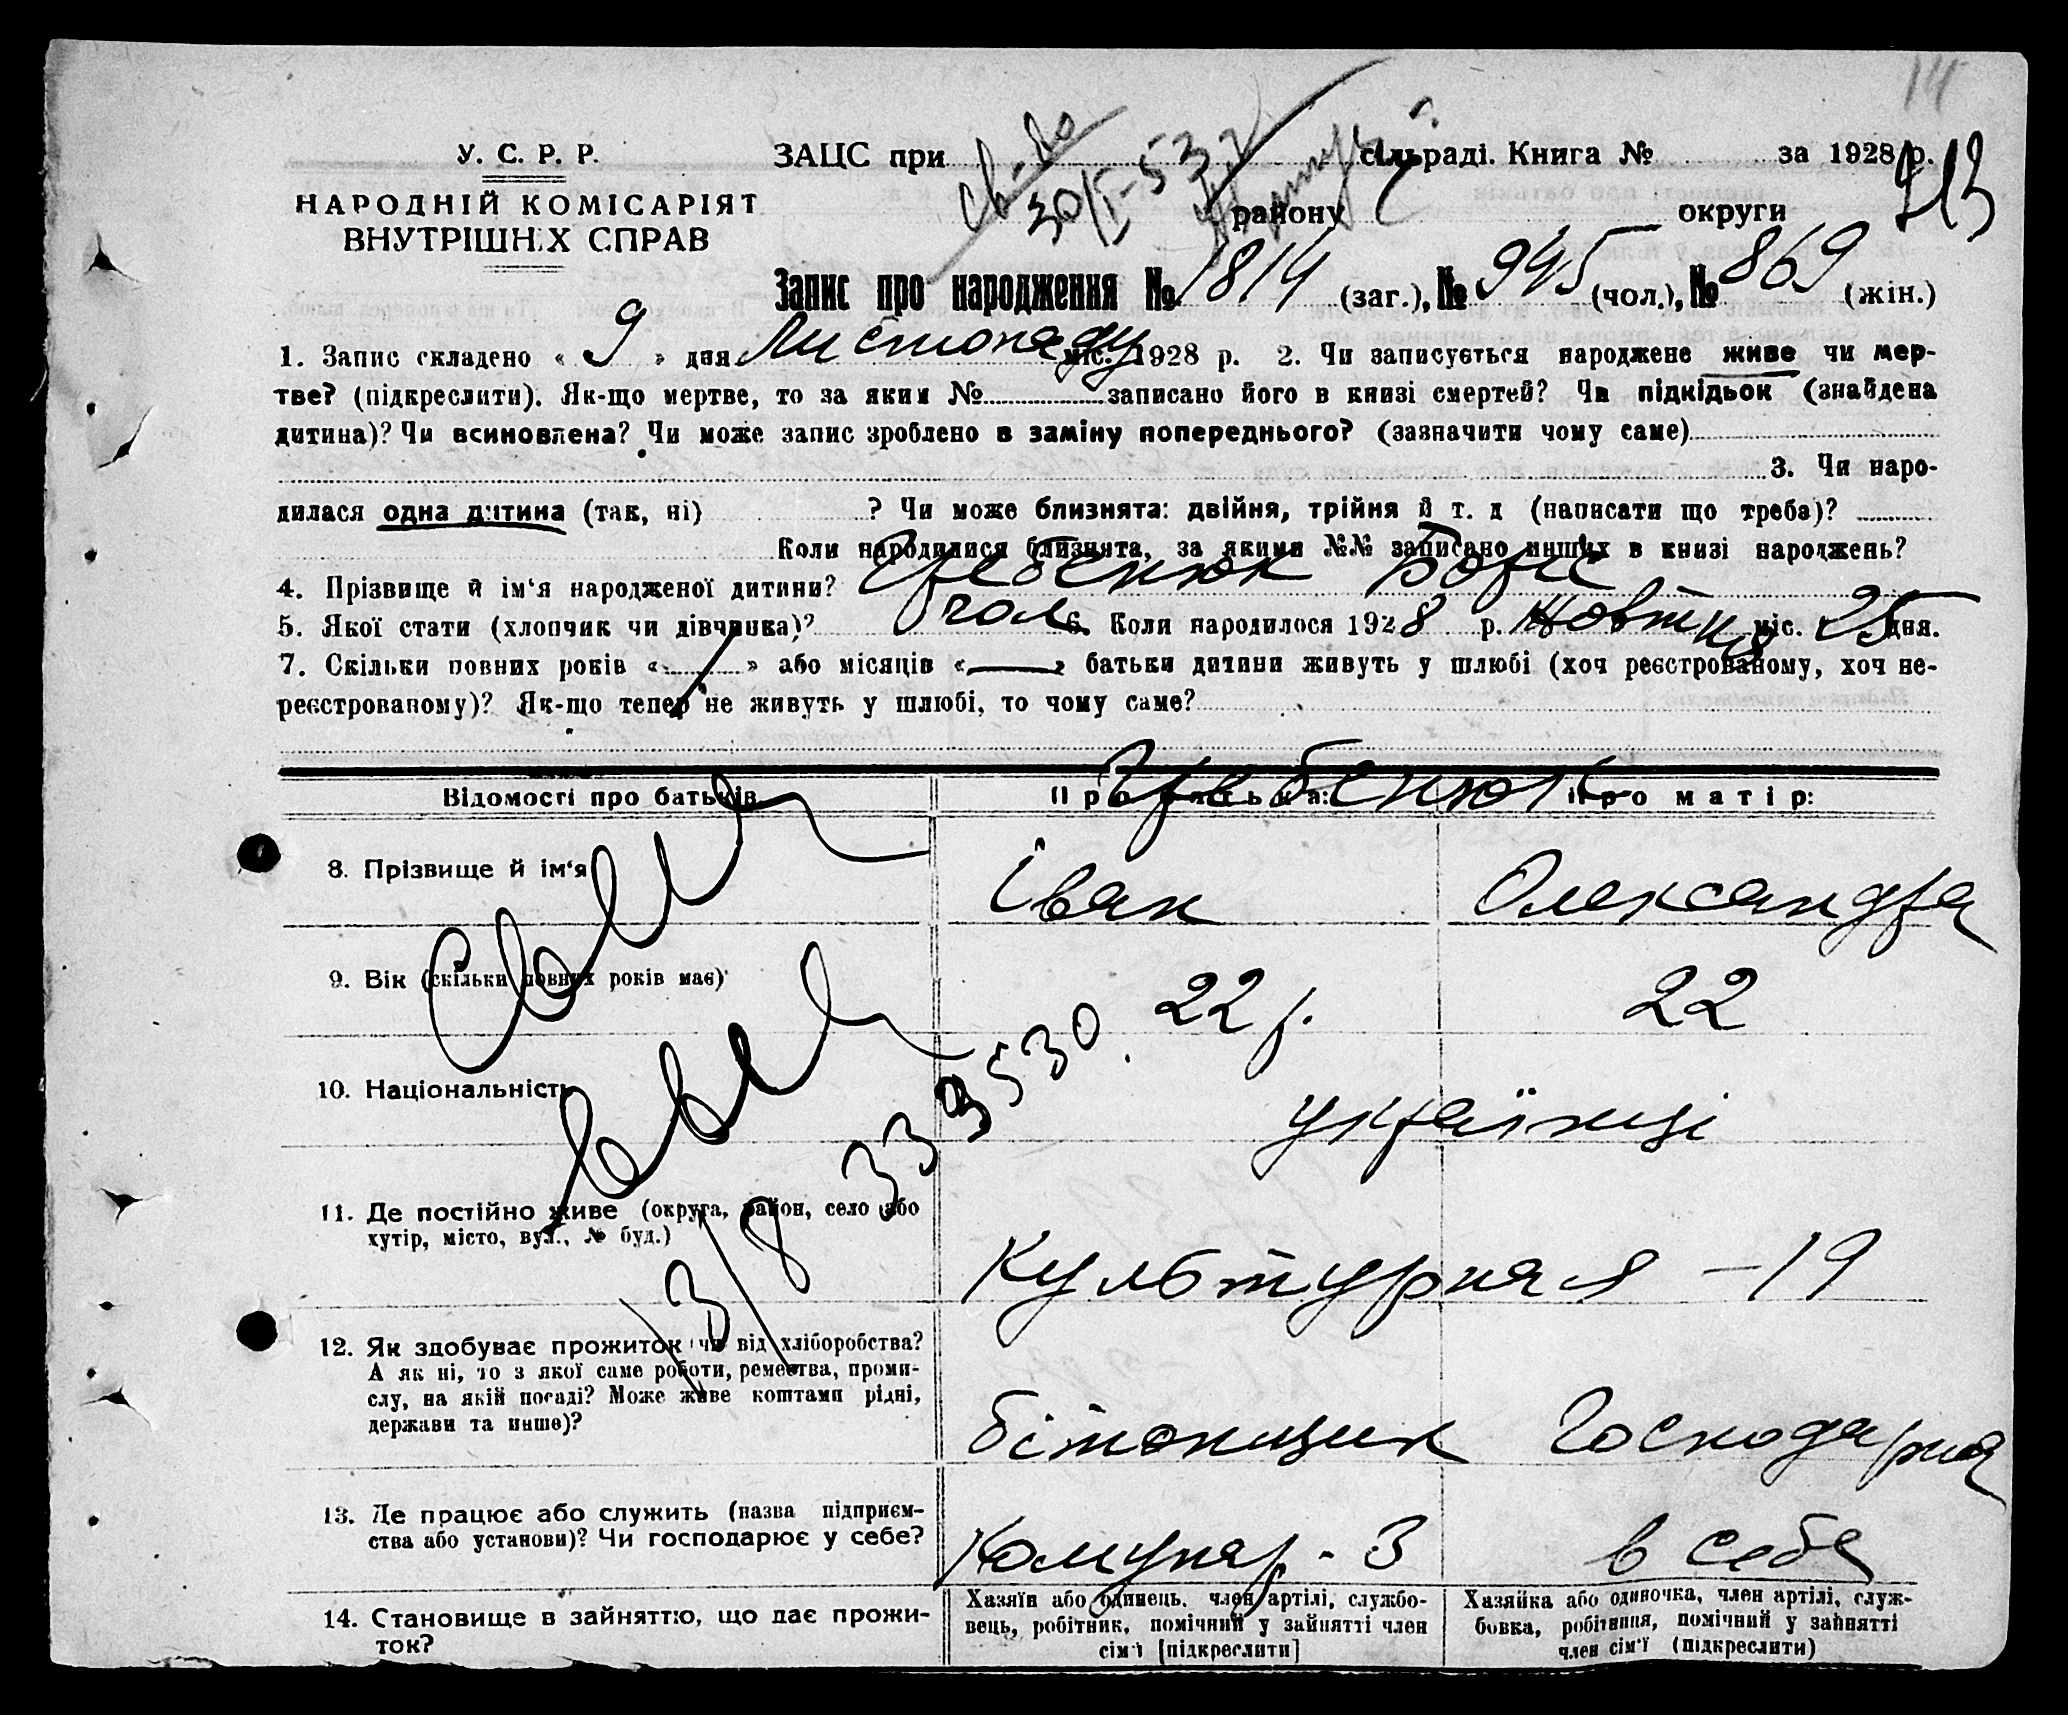 14
У. С. Р. Р.
НАРОДНІЙ КОМІСАРІЯТ
ВНУТРІШНІХ СПРАВ
ЗАЦС при сільраді. Книга № за 1928 р.
30/І-53
району округи
Запис про народження № 1814 (заг.), № 945 (чол.), № 869 (жін.)
1. Запис складено « 9 » дня Листопаду міс. 1928 р. 2. Чи записується народжене живе чи мер-
тве? (підкреслити). Як-що мертве, то за яким № записано його в книзі смертей? Чи підкідьок (знайдена
дитина)? Чи всиновлена? Чи може запис зроблено в заміну попереднього? (зазначити чому саме)
3. Чи наро-
дилася одна дитина (так, ні) ? Чи може близнята: двійня, трійня й т. д (написати що треба)?
Коли народилися близнята, за якими №№ записано инших в книзі народжень?
4. Прізвище й ім‘я народженої дитини? Гребенюк Борис
5. Якої стати (хлопчик чи дівчинка)? чол. 6. Коли народилося 1928 р. Жовтня міс. 25 дня.
7. Скільки повних років « » або місяців « — » батьки дитини живуть у шлюбі (хоч реєстрованому, хоч не-
реєстрованому)? Як-що тепер не живуть у шлюбі, то чому саме?
Відомості про батьків Про батька: Про матір:
Гребенюк
8. Прізвище й ім‘я Іван Олександра
9. Вік (скільки повних років має) 22 р. 22
10. Національність українці
11. Де постійно живе (округа, район, село або
хутір, місто, вул., № буд.) Культурная – 19
12. Як здобуває прожиток чи від хліборобства?
А як ні, то з якої саме роботи, ремества, проми-
слу, на якій посаді? Може живе коштами рідні,
держави та инше)? бітонщик Господарня
13. Де працює або служить (назва підприєм-
ства або установи)? Чи господарює у себе? Комунар - 3 в себе
14. Становище в зайняттю, що дає прожи-
ток?
Хазяїн або одинець, член артілі, службо-
вець, робітник, помічний у зайнятті член
сім‘ї [підкреслити]
Хазяйка або одиночка, член артілі, служ-
бовка, робітниця, помічний у зайнятті
член сім‘ї (підкреслити)